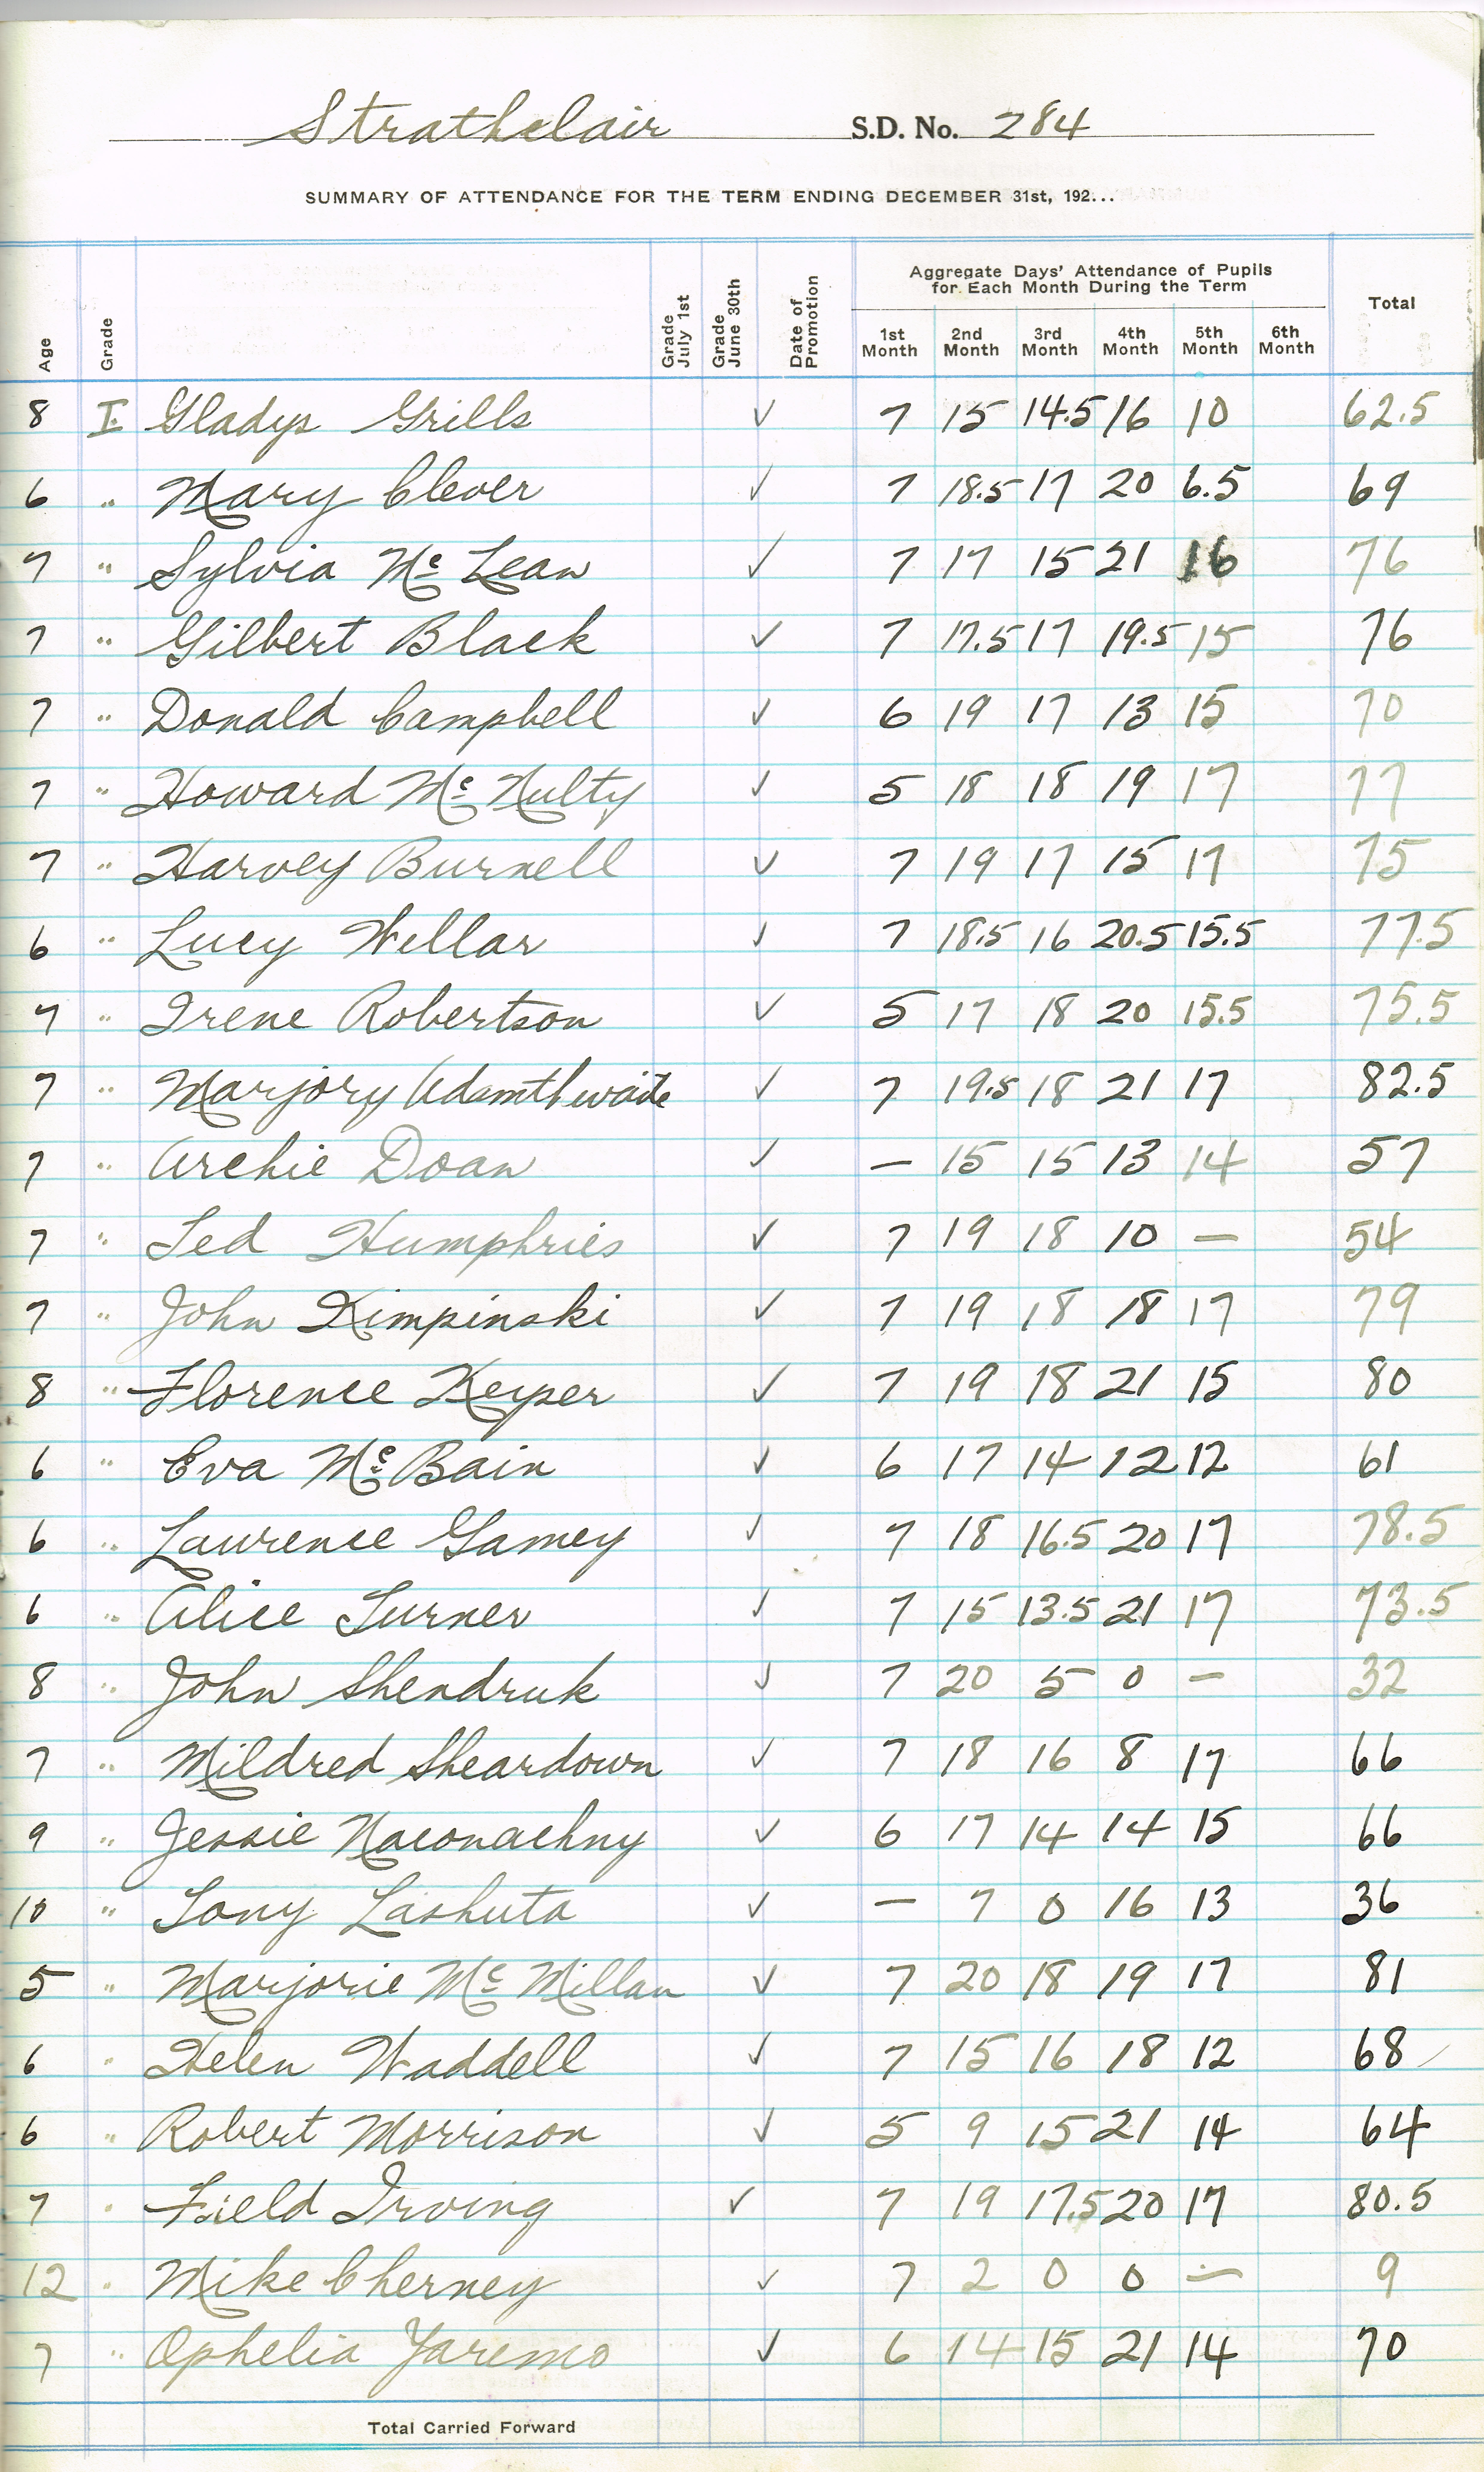 Strathclair S.D. No. 284
SUMMARY OF ATTENDANCE FOR THE TERM ENDING DECEMBER 31st, 192...
Age Grade Grade July 1st Grade June 30th Date of Promotion Aggregate Days' Attendance of Pupils for Each Month During the Term Total
1st Month 2nd Month 3rd Month 4th Month 5th Month 6th Month
8 I. Gladys Grills ✓ 7 15 14.5 16 10 62.5
6 " Mary Clever ✓ 7 18.5 17 20 6.5 69
7 " Sylvia Mc Lean ✓ 7 17 15 21 16 76
7 " Gilbert Black ✓ 7 17.5 17 19.5 15 76
7 " Donald Campbell ✓ 6 19 17 13 15 70
7 " Howard Mc Nulty ✓ 5 18 18 19 17 77
7 " Harvey Burnell ✓ 7 19 17 15 17 75
6 " Lucy Wellar ✓ 7 18.5 16 20.5 15.5 77.5
7 " Irene Robertson ✓ 5 17 18 20 15.5 75.5
7 " Marjory Adamthwaite ✓ 7 19.5 18 21 17 82.5
7 " Archie Doan ✓ — 15 15 13 14 57
7 " Ted Humphries ✓ 7 19 18 10 — 54
7 " John Kimpinski ✓ 7 19 18 18 17 79
8 " Florence Keyser ✓ 7 19 18 21 15 80
6 " Eva Mc Bain ✓ 6 17 14 12 12 61
6 " Laurence Gamey ✓ 7 18 16.5 20 17 78.5
6 " Alice Turner ✓ 7 15 13.5 21 17 73.5
8 " John Shendruk ✓ 7 20 5 0 — 32
7 " Mildred Sheardown ✓ 7 18 16 8 17 66
9 " Jessie Naconachny ✓ 6 17 14 14 15 66
10 " Tony Lashuta ✓ — 7 0 16 13 36
5 " Marjorie Mc Millan ✓ 7 20 18 19 17 81
6 " Helen Waddell ✓ 7 15 16 18 12 68
6 " Robert Morrison ✓ 5 9 15 21 14 64
7 " Field Irving ✓ 7 19 17.5 20 17 80.5
12 " Mike Cherney ✓ 7 2 0 0 — 9
7 " Ophelia Yaremo ✓ 6 14 15 21 14 70
Total Carried Forward